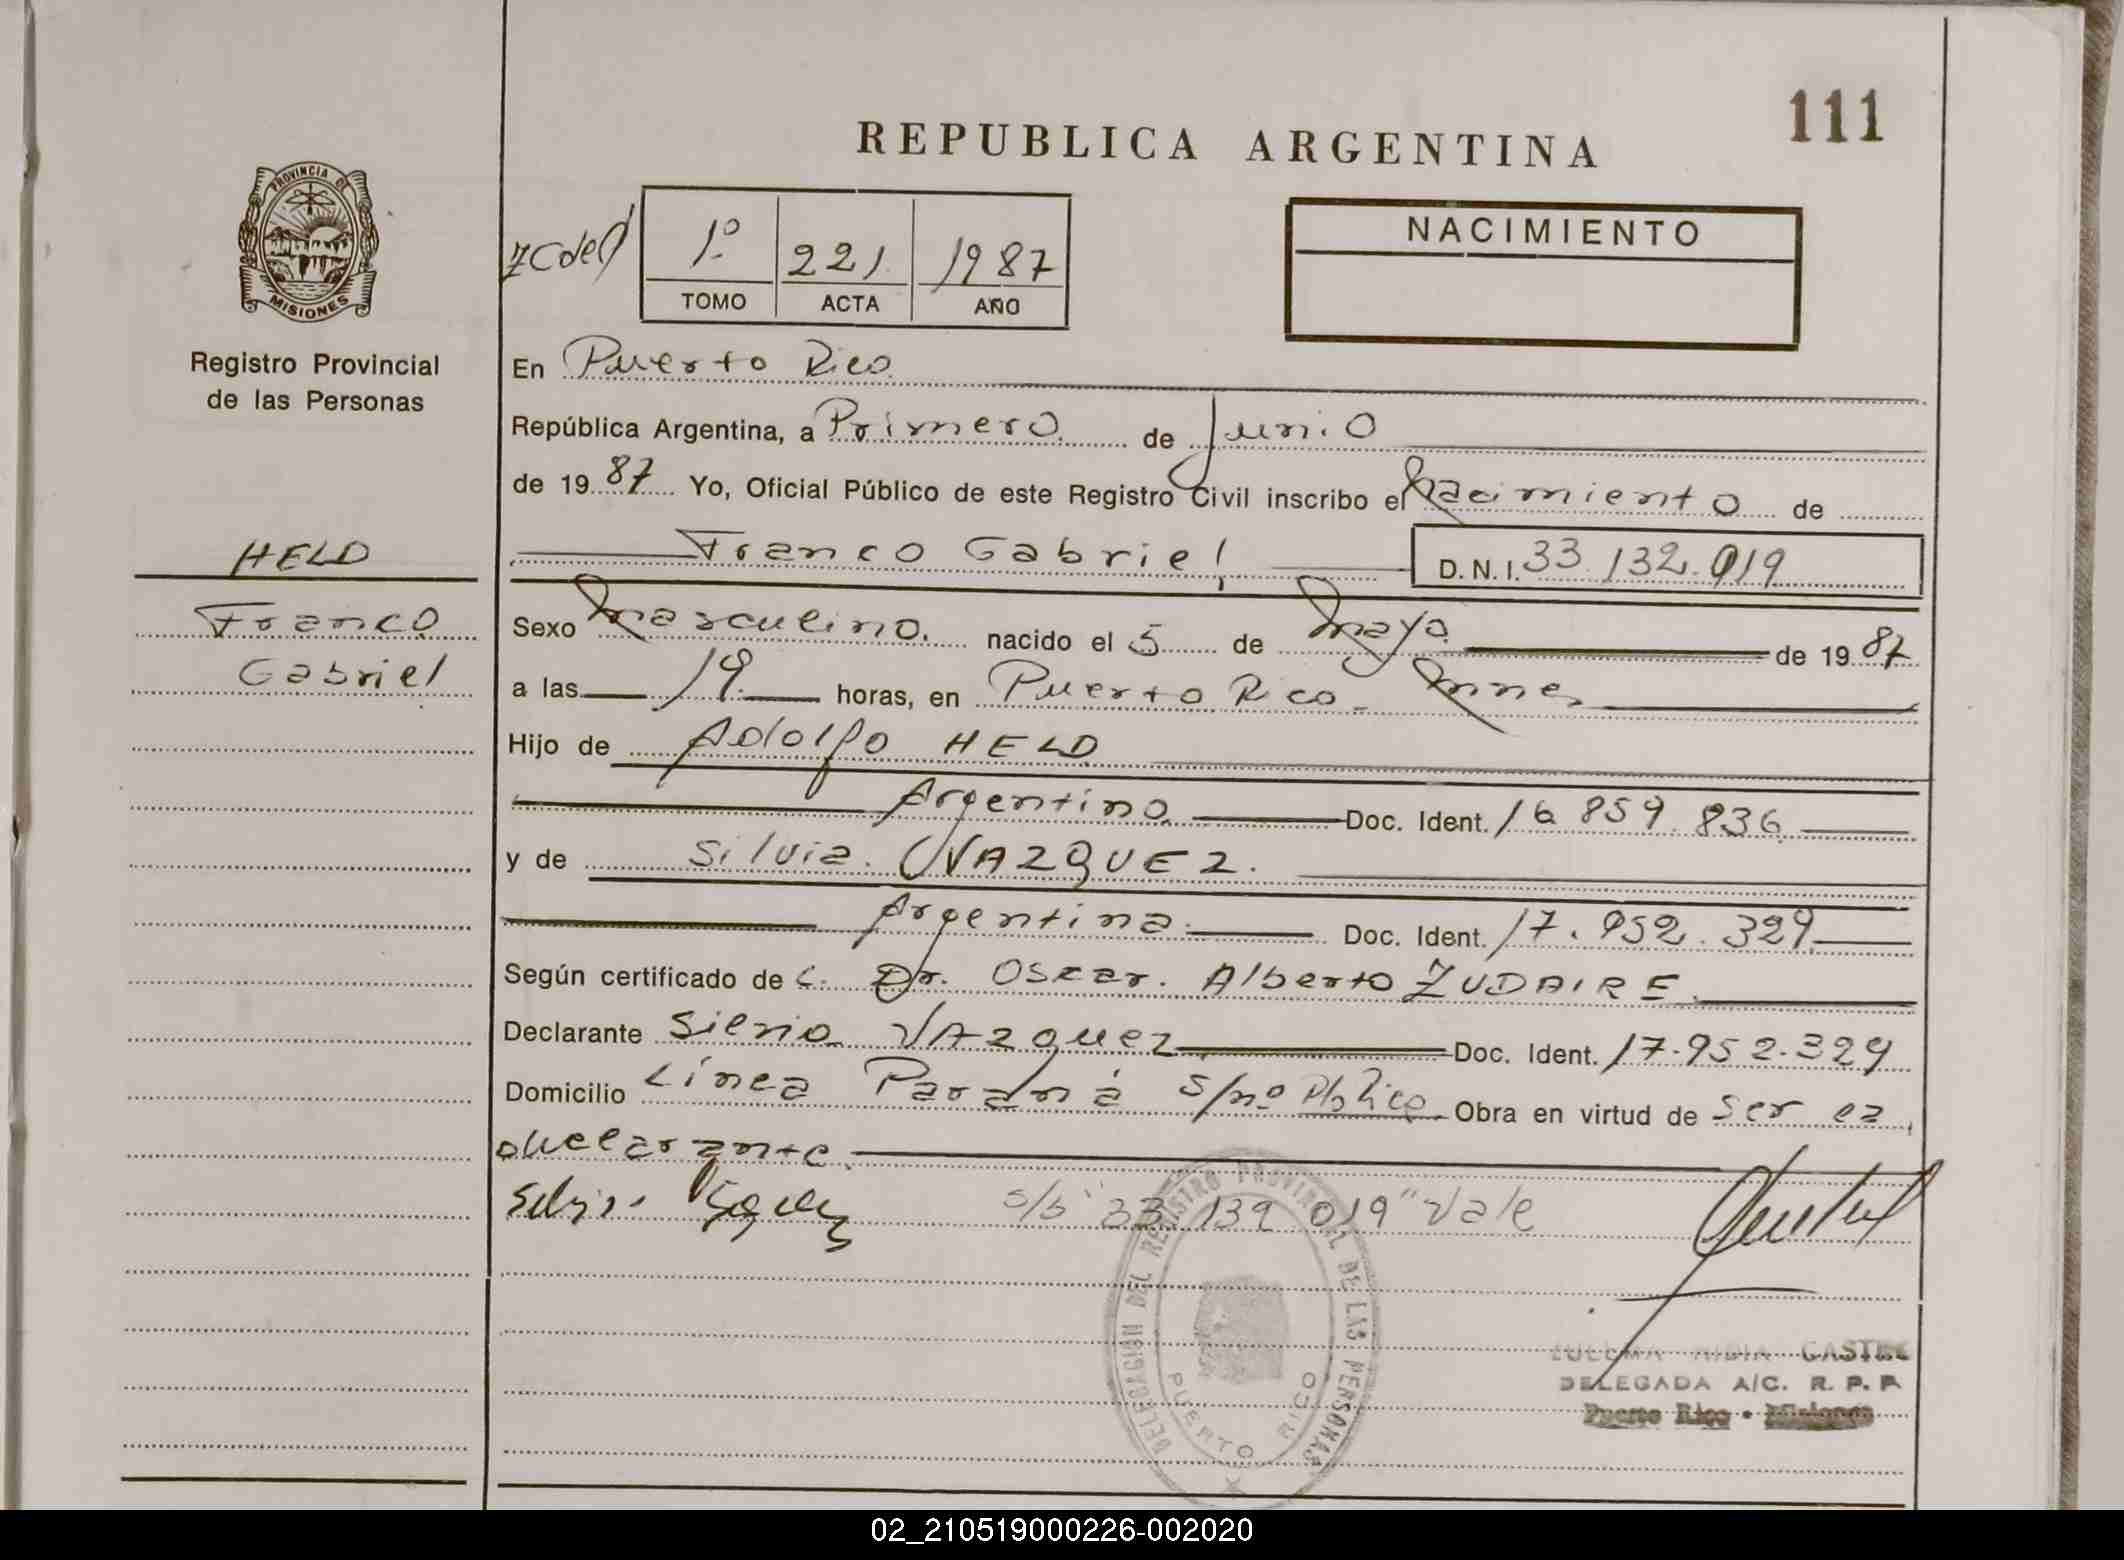 111
REPUBLICA ARGENTINA
PROVINCIA DE
MISIONES
Registro Provincial
de las Personas
1º 221 1987
TOMO ACTA AÑO
NACIMIENTO
En Puerto Rico
República Argentina, a Primero de Junio
de 1987 Yo, Oficial Público de este Registro Civil inscribo el Nacimiento de
HELD
Franco Gabriel D.N.I. 33.132.019
Franco
Gabriel
Sexo Masculino. nacido el 5 de Mayo de 1987
a las 19 horas, en Puerto Rico - Mnes
Hijo de Adolfo HELD
Argentino Doc. Ident. 16 859 836
y de Silvia VAZQUEZ.
Argentina Doc. Ident. 17.952.329
Según certificado de Dr. Oscar Alberto ZUDAIRE
Declarante Silvia VAZQUEZ Doc. Ident. 17.952.329
Domicilio Línea Paraná s/nº Pto Rico Obra en virtud de ser la
declarante.
s/b "33 132 019" Vale
DELEGACION DEL REGISTRO PROVINCIAL DE LAS PERSONAS
PUERTO RICO
ZULEMA CASTEL
DELEGADA A/C. R. P. P.
Puerto Rico - Misiones
02_210519000226-002020